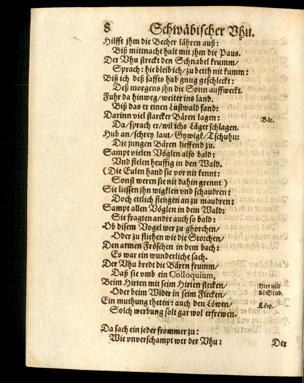 8 Schwäbischer Vhu.
Hilfft jhm die Becher lähren auß:
Biß mittnacht halt mit jhm die Paus.
Der Vhu streckt den Schnabel krumm/
Sprach: hie bleib ich/ zu beth nit kumm:
Biß ich deß saffts hab gnug geschleckt:
Deß morgens jhn die Sonn auffweckt.
Fuhr da hinweg/ weiter ins land.
Biß das er einen Lustwald fand:
Darinn viel starcker Bären lagen: Bär.
Da/ sprach er/ wil ichs Läger schlagen.
Hub an/ schrey laut/ Gywigk/ Tschuhu:
Die jungen Bären lieffend zu.
Sampt vielen Vöglen also bald:
Vnd fielen heuffig in den Wald.
( Die Eulen hand sie vor nit kennt:
Sonst weren sie nit dahin grennt )
Sie liessen jhn wigklen vnd schaudren:
Doch ettlich fiengen an zu maudren:
Sampt allen Vöglen in dem Wald:
Sie fragten andre auch so bald:
Ob disem Vogel wer zu ghorchen/
Oder zu fliehen wie die Storchen/
Den armen Fröschen in dem bach:
Es war ein wunderliche sach.
Der Vhu bredt die Bären frumm/
Daß sie vmb ein Colloquium,
Beim Hirten mit seim Hirten stecken/
Oder beim Wilder in seim Flecken/
Ein muthung theten: auch den Löwen/ Löw.
Solch werbung solt gar wol erfrewen.
Da sach ein jeder frommer zu:
Wie vnverschampt wer der Vhu:
Der